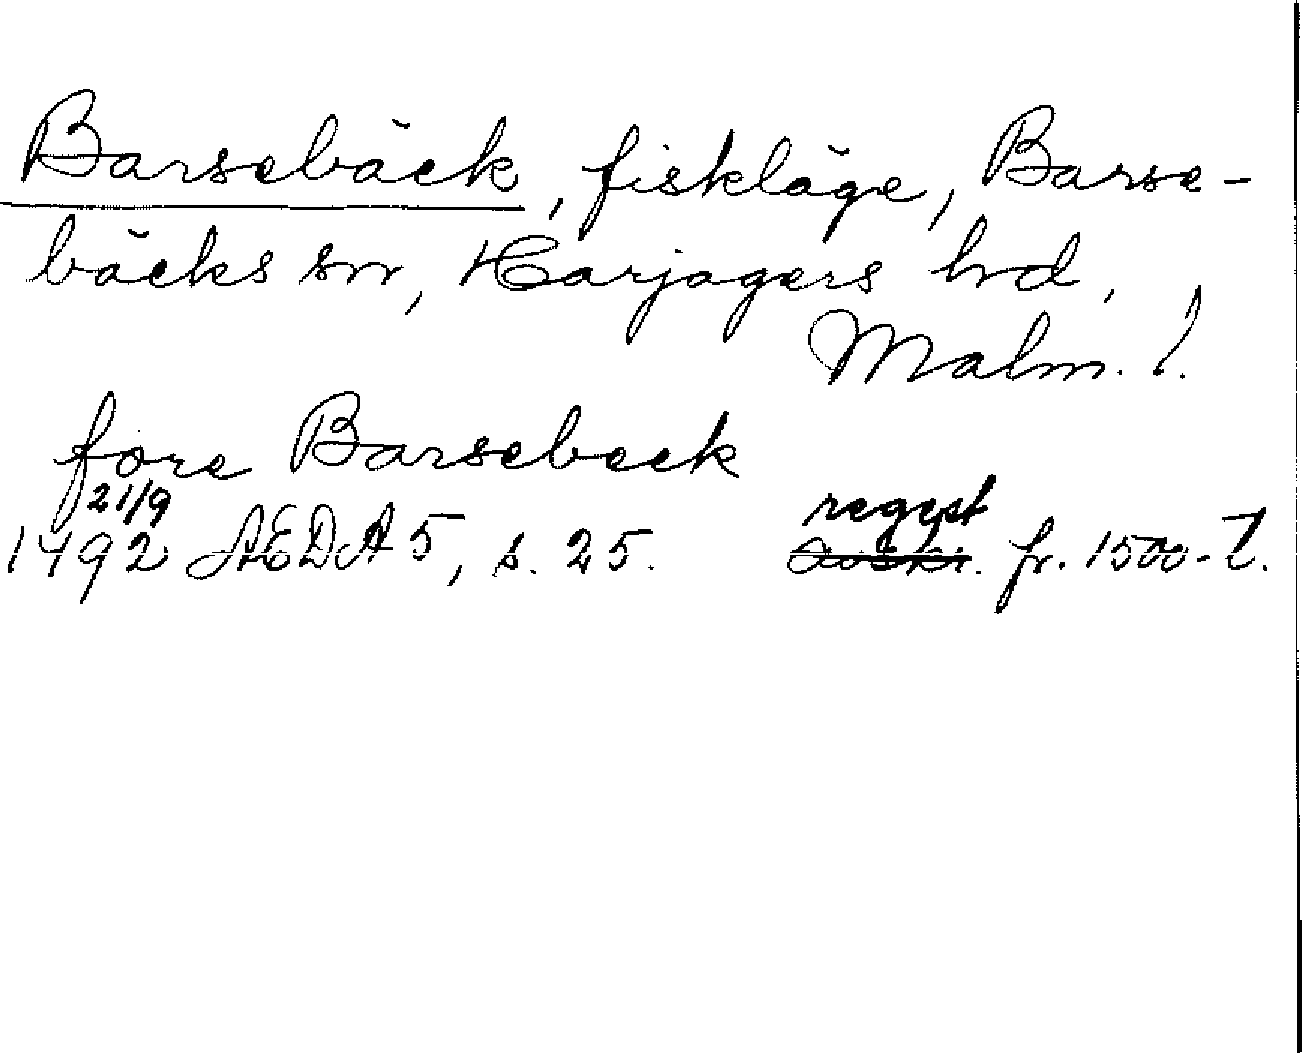 Barsebäck, fiskläge, Barse-
bäcks sn, Harjagers hd,
Malm. l.
fore Barsebeck
21/9 regest
1492 ÆDA 5, s. 25. avskr. fr. 1500-t.